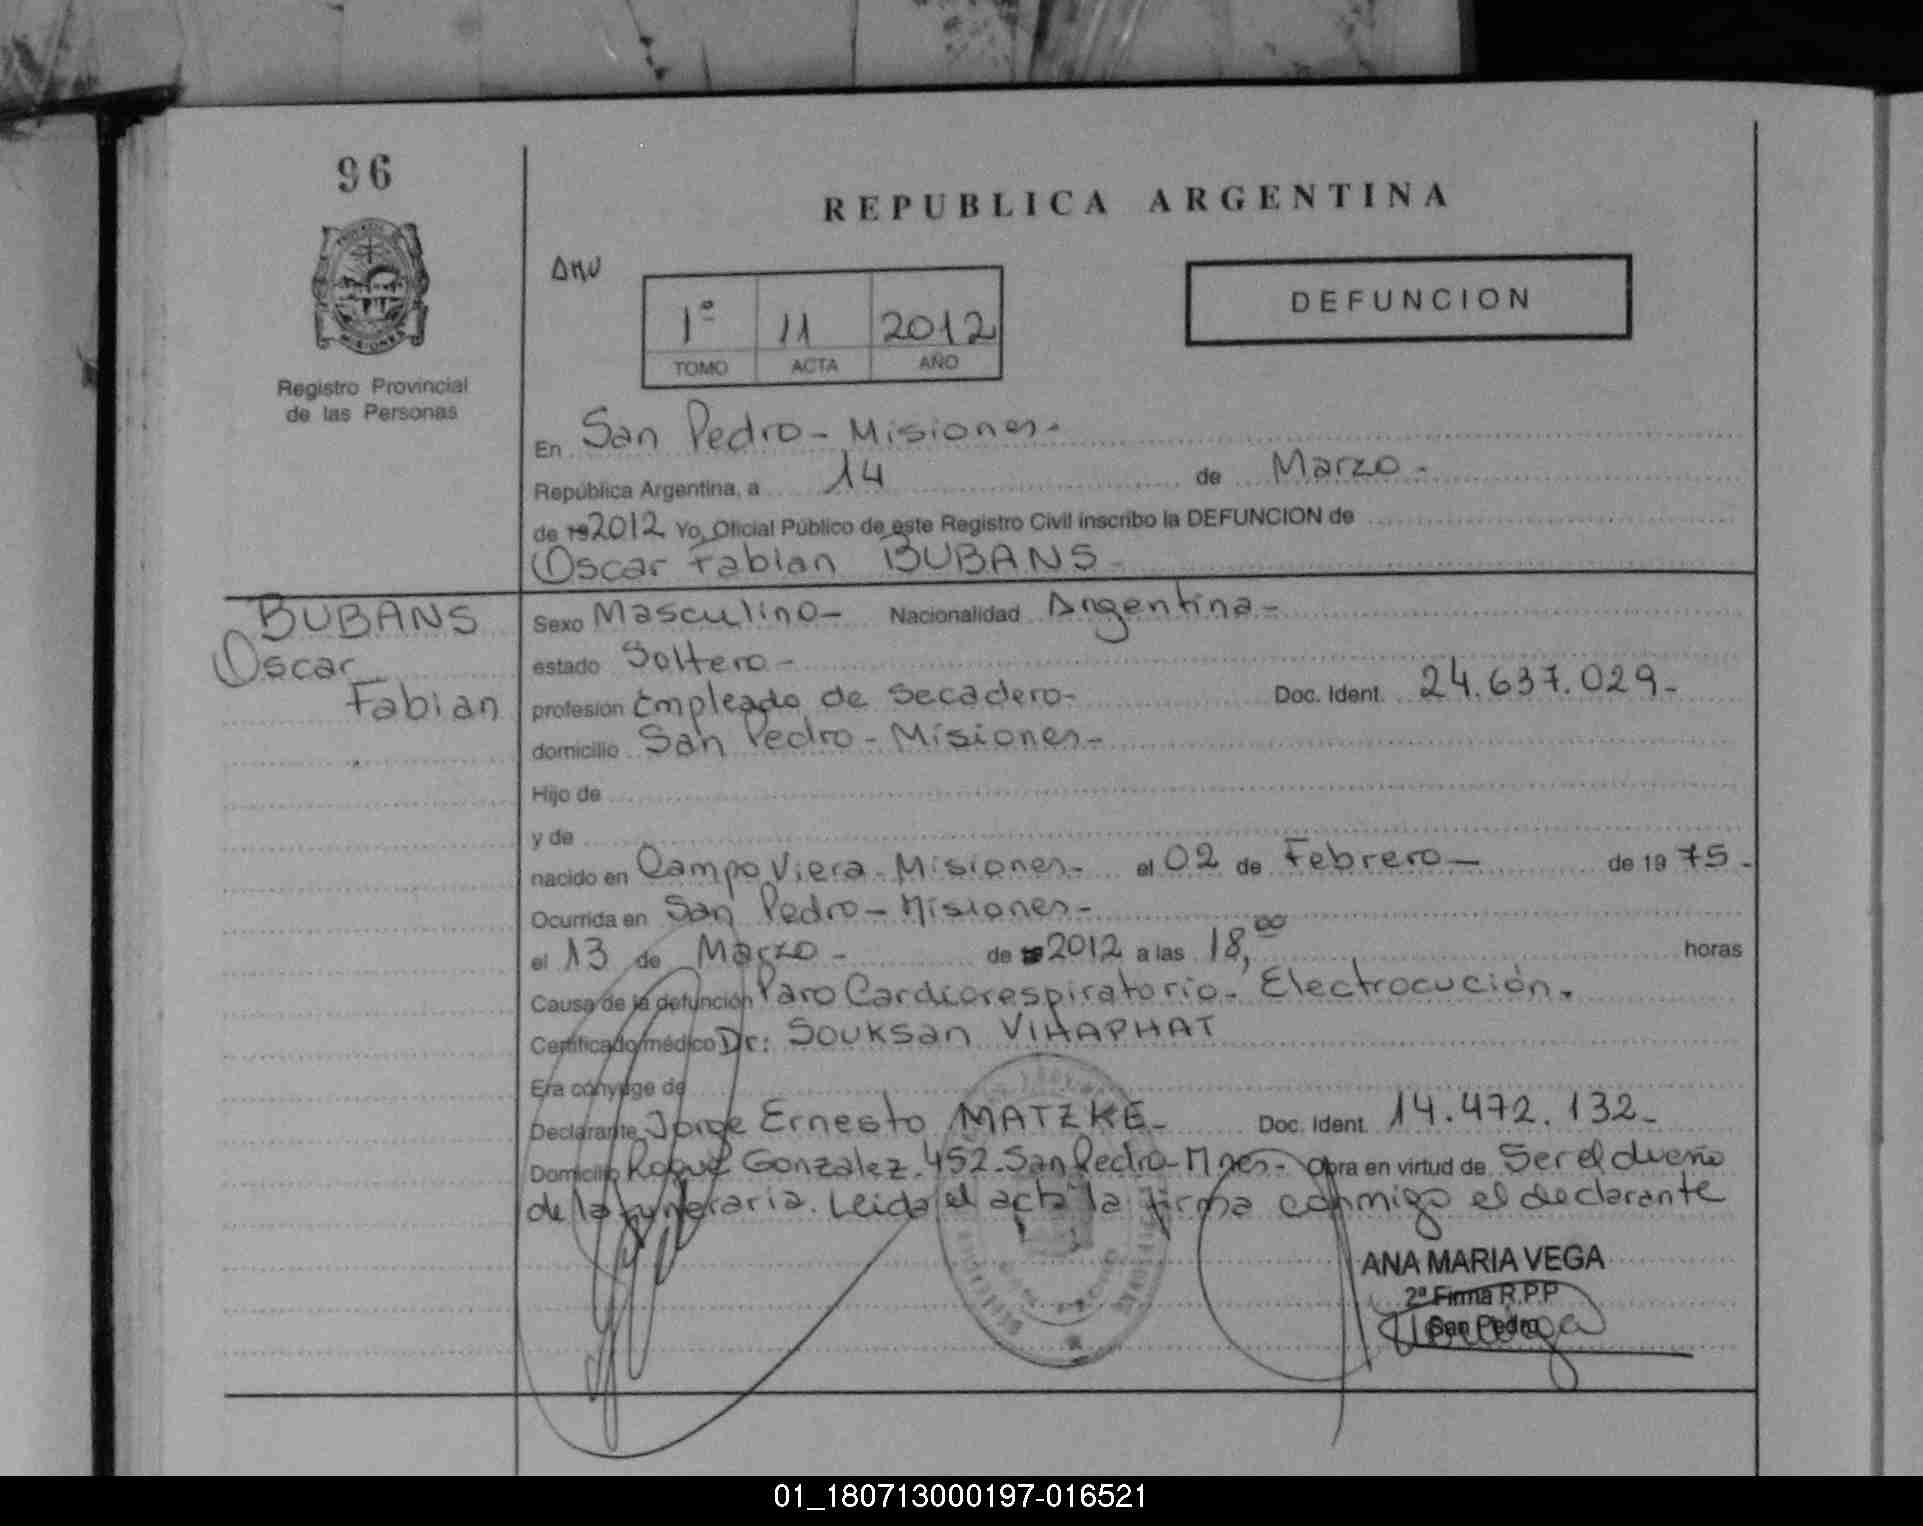 96
REPUBLICA ARGENTINA
DEFUNCION
1º 11 2012
TOMO ACTA AÑO
MISIONES
Registro Provincial
de las Personas
En San Pedro - Misiones -
República Argentina, a 14 de Marzo -
de 19 2012 Yo, Oficial Público de este Registro Civil inscribo la DEFUNCION de
Oscar Fabian BUBANS -
BUBANS
Oscar
Fabian
Sexo Masculino - Nacionalidad Argentina -
estado Soltero -
profesión Empleado de Secadero - Doc. Ident. 24.637.029 -
domicilio San Pedro - Misiones -
Hijo de
y de
nacido en Campo Viera - Misiones - el 02 de Febrero - de 19 75 -
Ocurrida en San Pedro - Misiones -
el 13 de Marzo - de 2012 a las 18,00 horas
Causa de la defunción Paro Cardiorespiratorio - Electrocución.
Certificado médico Dr: Souksan VIHAPHAT
Era cónyuge de
Declarante Jorge Ernesto MATZKE - Doc. Ident. 14.472.132 -
Domicilio Roque Gonzalez 452 - San Pedro - Mnes - Obra en virtud de Ser el dueño
de la funeraria. Leida el acta la firma conmigo el declarante
ANA MARIA VEGA
2ª Firma R.P.P
San Pedro
01_180713000197-016521